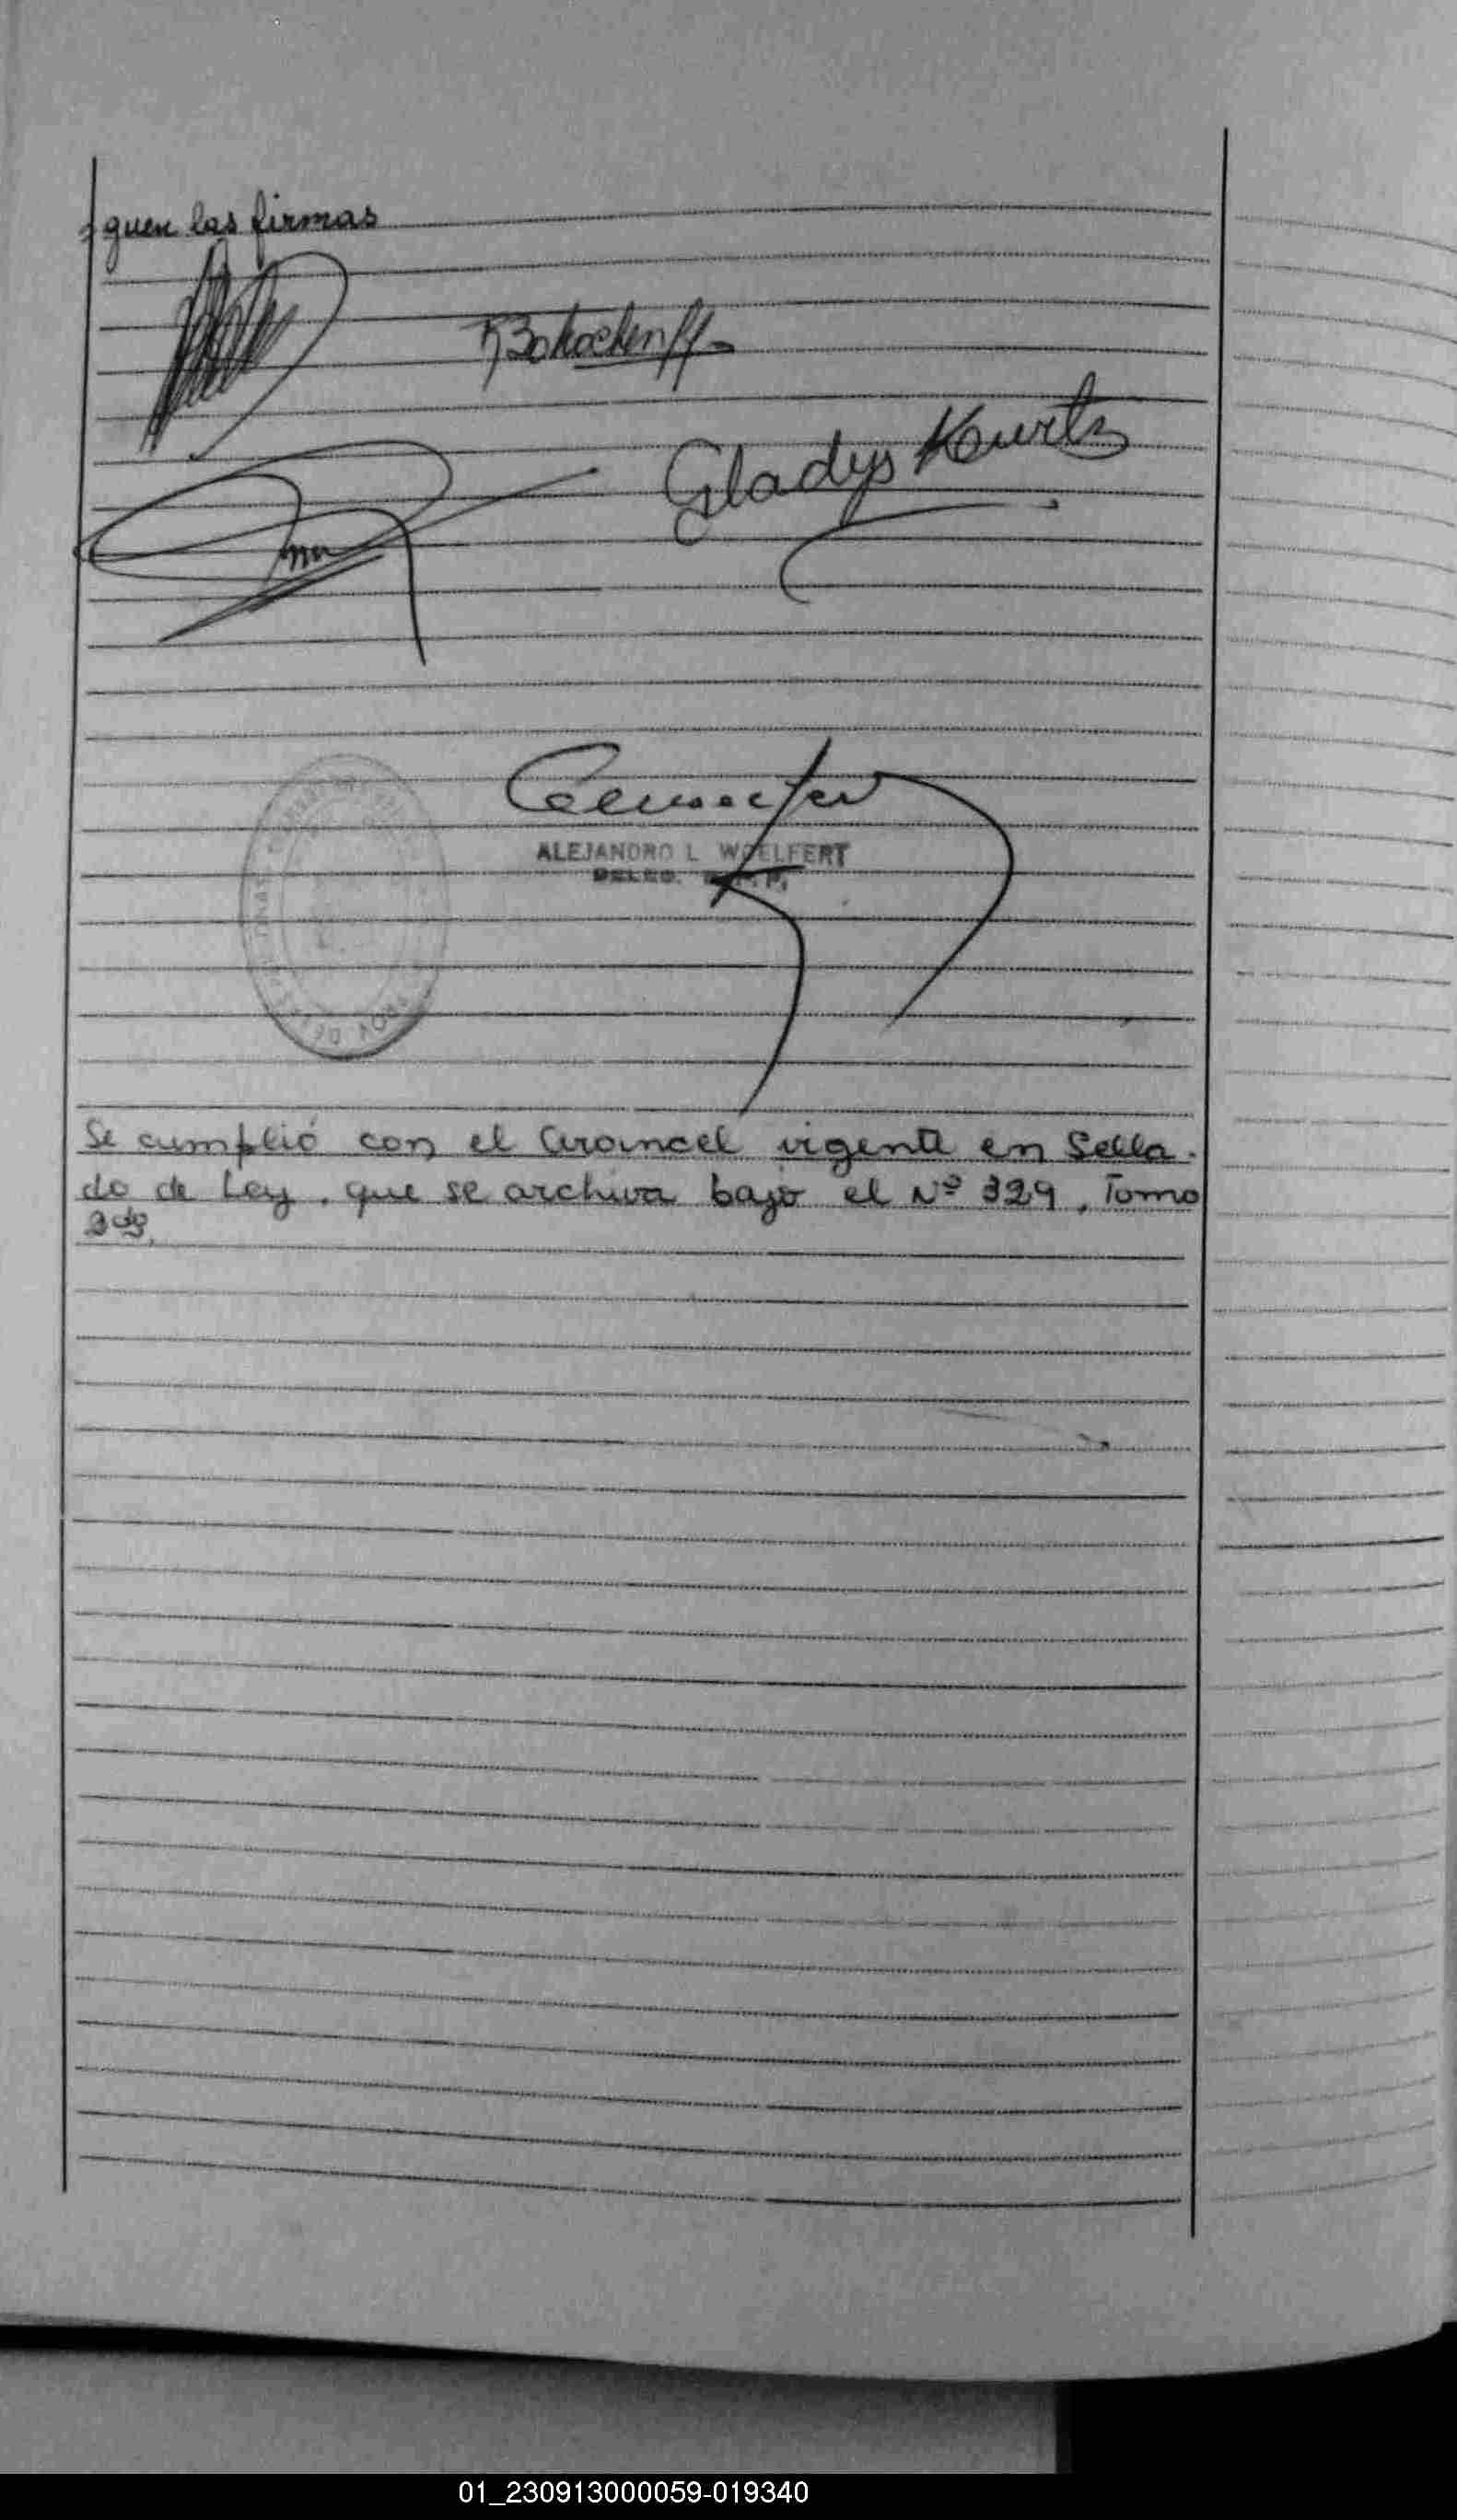 guen las firmas
Gladys Kurtz
ALEJANDRO L WOELFERT
DELEG.
PROV DE
Se cumplió con el Arancel vigente en Sella-
do de Ley, que se archiva bajo el Nº 329, Tomo
2do.
01_230913000059-019340